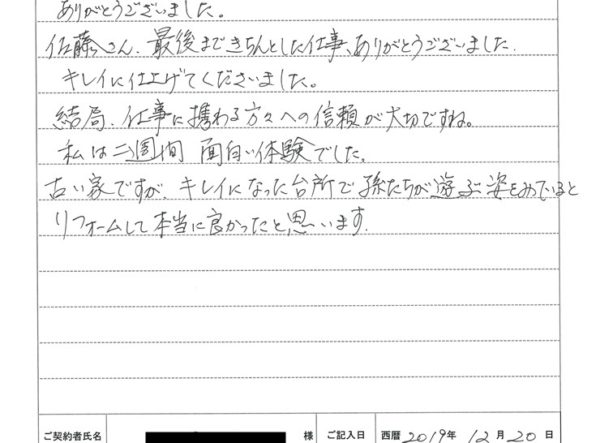 ありがとうございました。
佐藤さん、最後まできちんとした仕事、ありがとうございました.
キレイに仕上げてくださいました。
結局、仕事に携わる方々への信頼が大切ですね。
私は二週間 面白い体験でした.
古い家ですが、キレイになった台所で孫たちが遊ぶ姿をみていると
リフォームして本当に良かったと思います.
ご契約者氏名 様 ご記入日 西暦 2019年 12月 20日